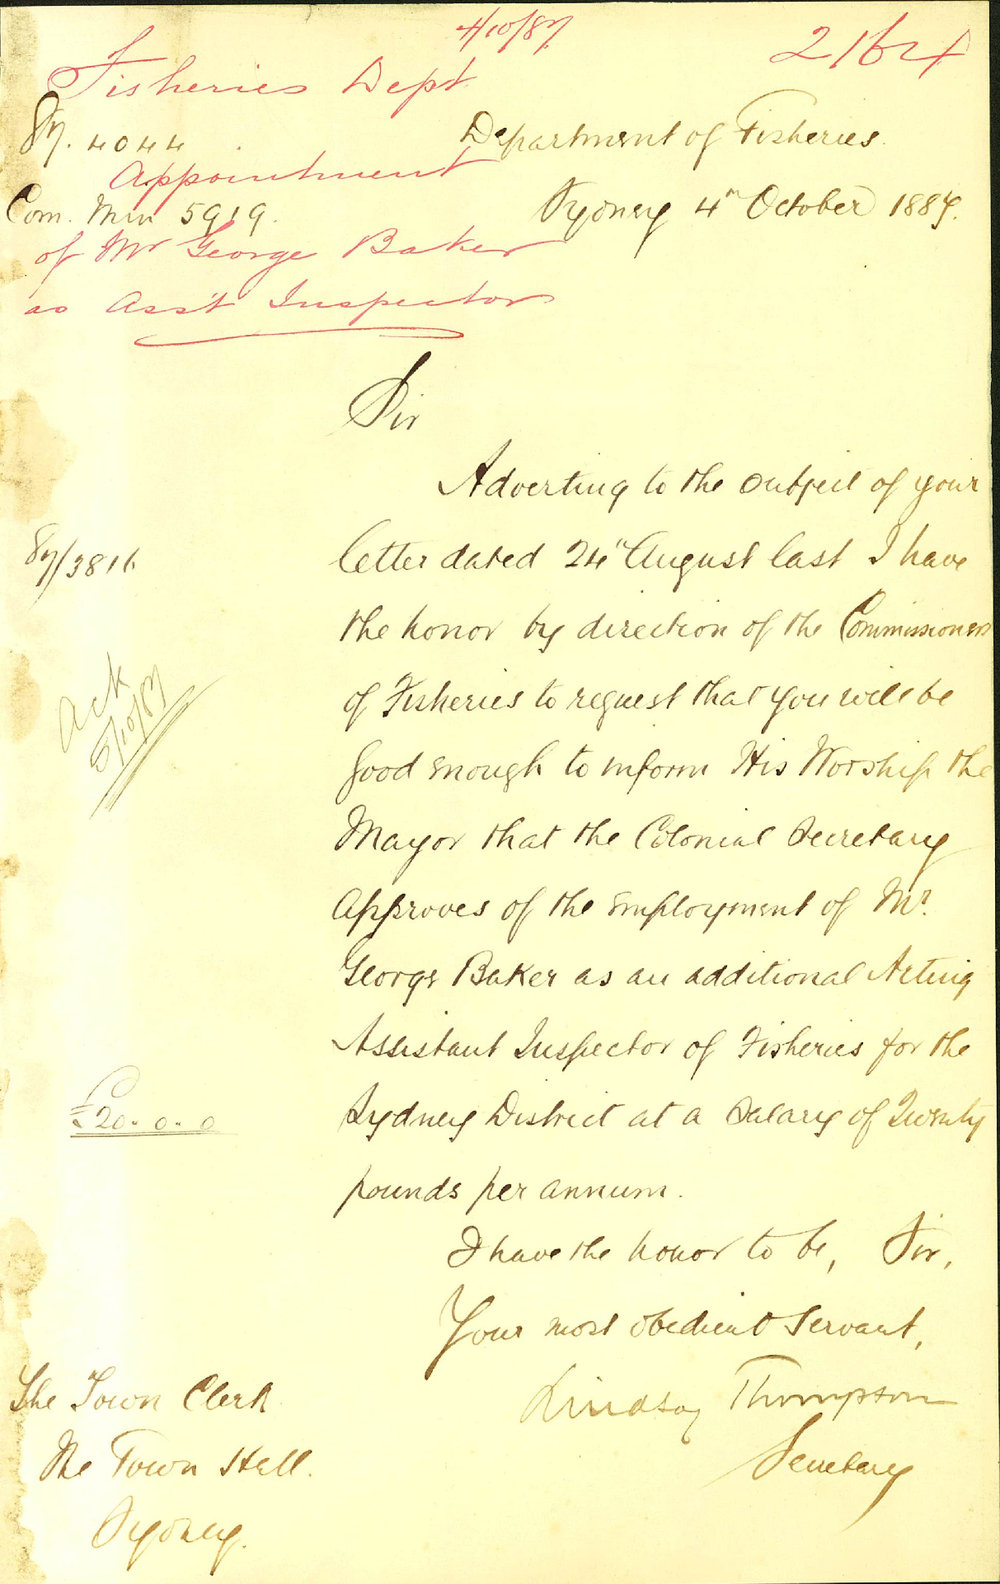 4/10/87
2164
Fisheries Dept
87. 4044
Department of Fisheries.
Appointment
Com. Min 5919.
Sydney 4th October 1887.
of Mr George Baker
as Asst Inspector
Sir
Adverting to the subject of your
87/3816
letter dated 24" August last I have
the honor by direction of the Commissioners
of Fisheries to request that you will be
Ack
5/10/87
good enough to inform His Worship the
Mayor that the Colonial Secretary
approves of the employment of Mr.
George Baker as an additional Acting
Assistant Inspector of Fisheries for the
£20. 0. 0
Sydney District at a salary of Twenty
pounds per annum.
I have the honor to be, Sir,
Your most obedient Servant,
Lindsay Thompson
Secretary
The Town Clerk
The Town Hall.
Sydney.